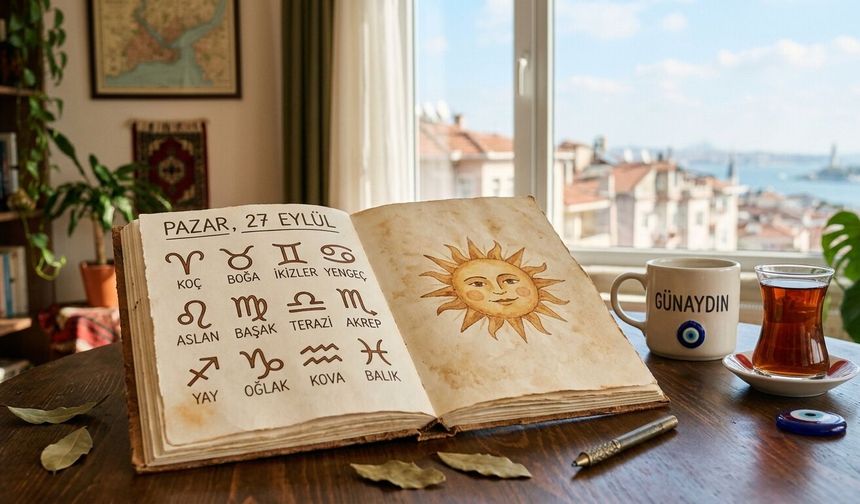 PAZAR, 27 EYLÜL
KOÇ BOĞA İKİZLER YENGEÇ
ASLAN BAŞAK TERAZİ AKREP
YAY OĞLAK KOVA BALIK
GÜNAYDIN